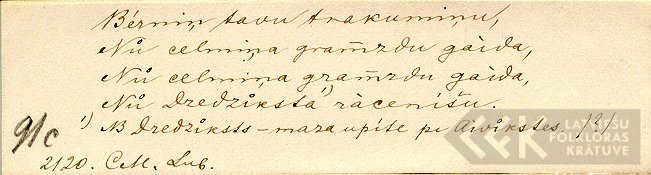 Bérniņ tavu trakumiņu,
Nů celmiņa gram̄zdu gàida,
Nů celmiņa gram̄zdu gàida,
Nů Dzedzîkstà¹⁾ ràcenišu.
¹⁾ NB Dzedzîksts – maza upite pe Aivîkstes /2/
91c
2120. C.M. Lub.
LATVIEŠU
FOLKLORAS
KRĀTUVE